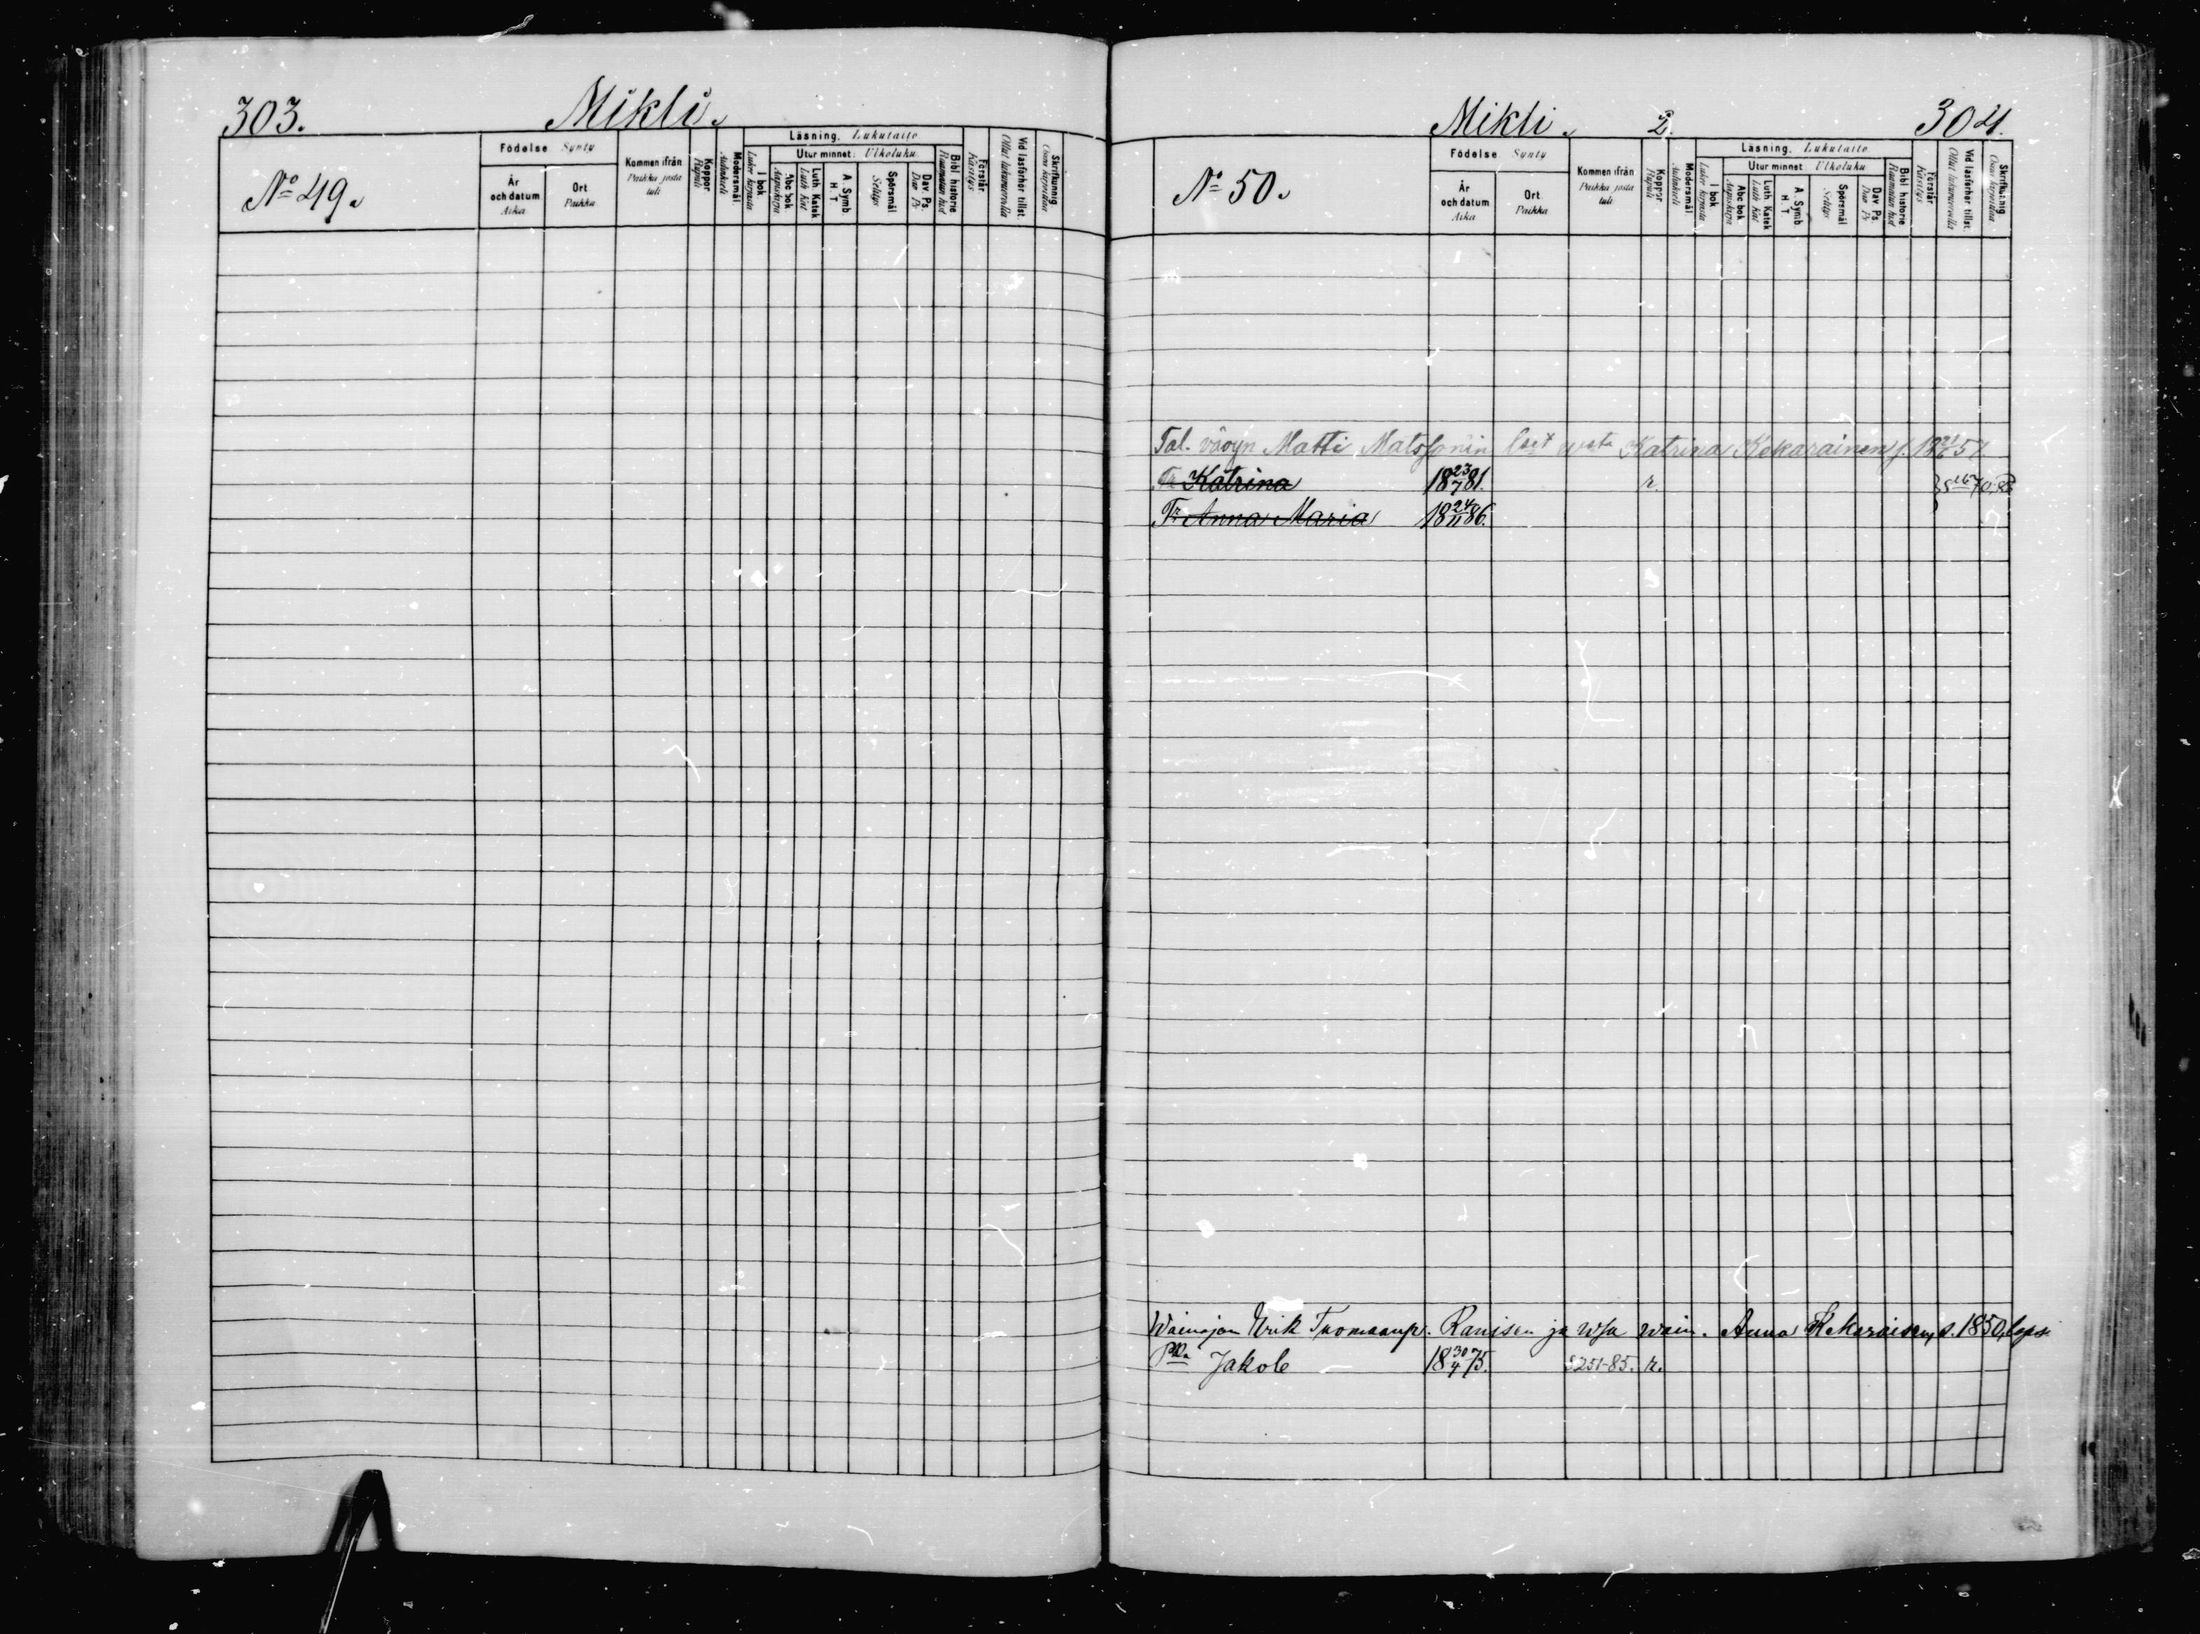 303. Mikli.
Nº 49.
Födelse Synty
År och datum Aika
Ort Paikka
Kommen ifrån Paikka josta tuli
Koppor Rupuli
Modersmål Äidinkieli
Läsning. Lukutaito
I bok Lukee kirjasta
Utur minnet: Ulkoluku
Abc bok Aapiskirja
Luth Katek Luth Kat
A. Symb H. T
Spörsmål Selitys
Dav. Ps. Dav Ps
Bibl. historie Raamatun hist
Förstår Käsitys
Vid läsförhör tillst. Ollut lukuvuorolla
Skrifkunnig Osaa kirjoittaa
Mikli. 2. 304.
Nº 50.
Födelse Synty
År och datum Aika
Ort Paikka
Kommen ifrån Paikka josta tuli
Koppor Rupuli
Modersmål Äidinkieli
Läsning. Lukutaito
I bok Lukee kirjasta
Utur minnet: Ulkoluku
Abc bok Aapiskirja
Luth Katek Luth Kat
A. Symb H. T
Spörsmål Selitys
Dav. Ps. Dav Ps
Bibl. historie Raamatun hist
Förstår Käsitys
Vid läsförhör tillst. Ollut lukuvuorolla
Skrifkunnig Osaa kirjoittaa
Tal. vävyn Matti Matssonin Katrina Kekarainen
Tr Katrina 18 23/7 81. r.
Tr Anna Maria 18 24/11 86.
Wainajan Erik Tuomaanp. Ranisen ja wsa wain. Anna Kekaraisen, s. 1850, lapsi
Jakob 18 30/4 75. S251-85. r.